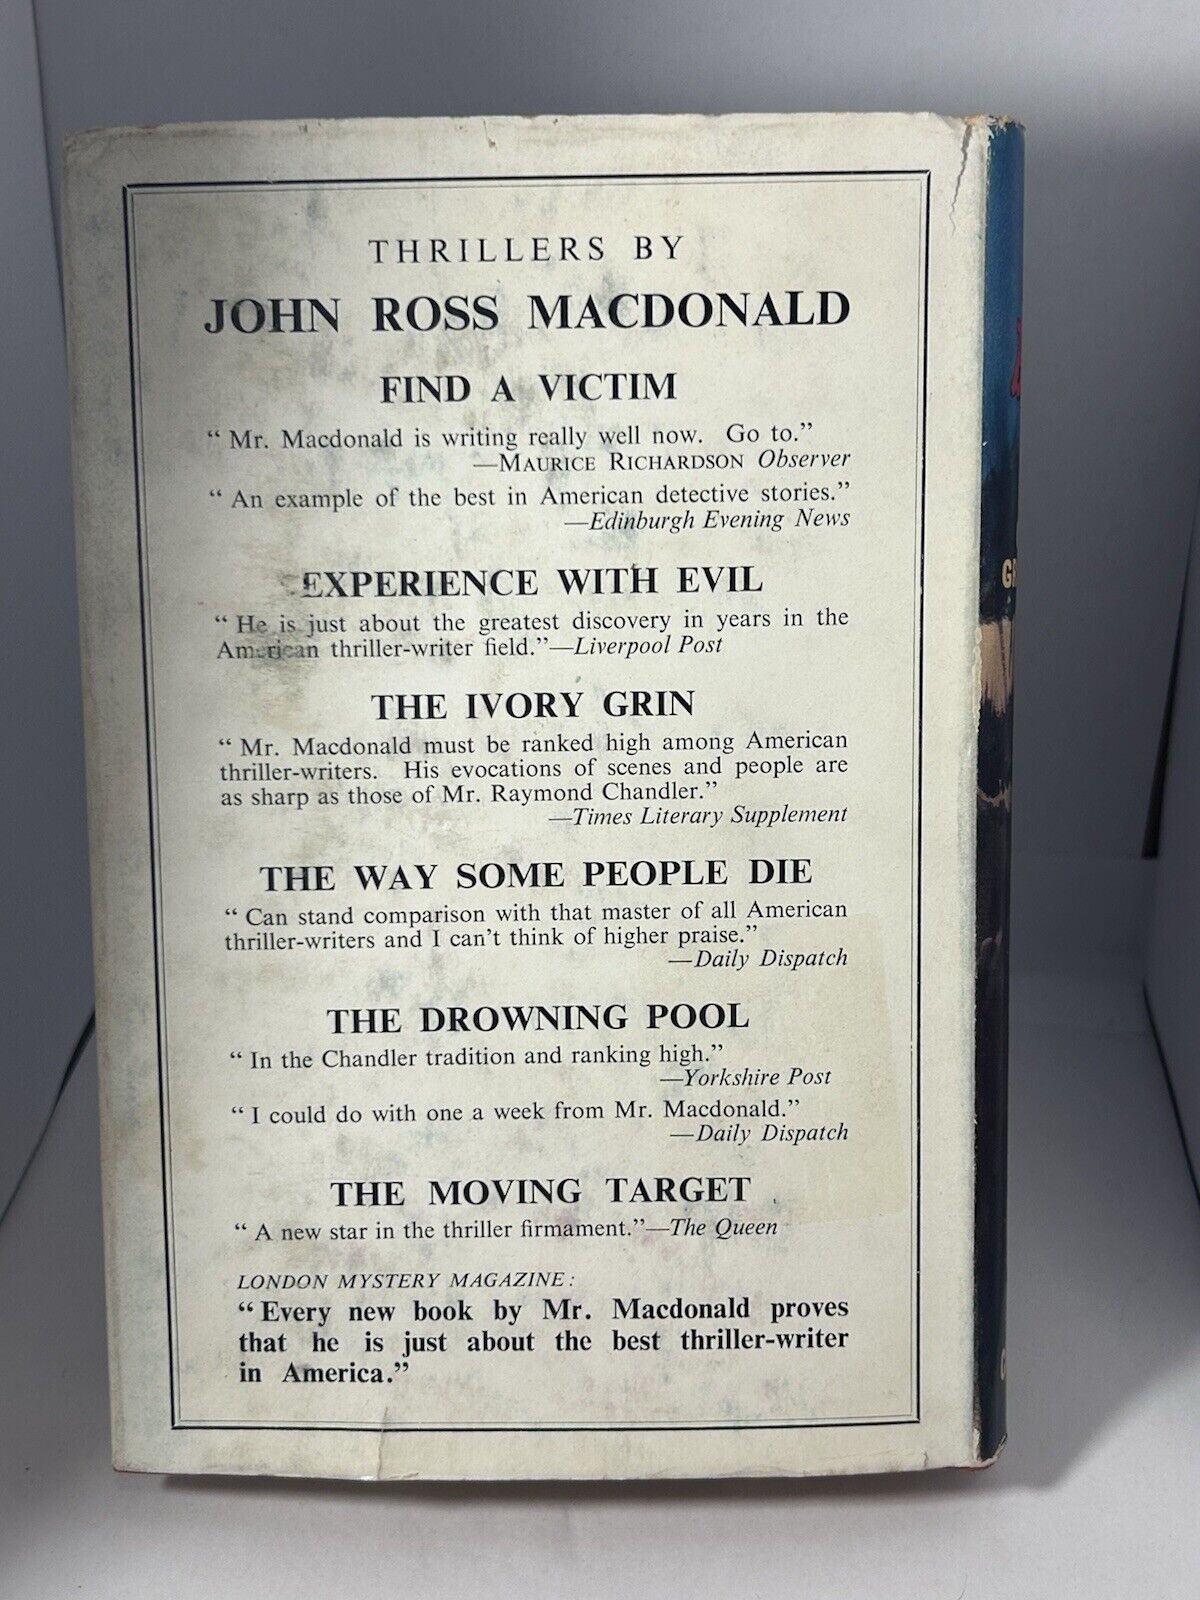 THRILLERS BY
JOHN ROSS MACDONALD
FIND A VICTIM
“ Mr. Macdonald is writing really well now. Go to.”
—MAURICE RICHARDSON Observer
“ An example of the best in American detective stories.”
—Edinburgh Evening News
EXPERIENCE WITH EVIL
“ He is just about the greatest discovery in years in the
American thriller-writer field.”—Liverpool Post
THE IVORY GRIN
“ Mr. Macdonald must be ranked high among American
thriller-writers. His evocations of scenes and people are
as sharp as those of Mr. Raymond Chandler.”
—Times Literary Supplement
THE WAY SOME PEOPLE DIE
“ Can stand comparison with that master of all American
thriller-writers and I can’t think of higher praise.”
—Daily Dispatch
THE DROWNING POOL
“ In the Chandler tradition and ranking high.”
—Yorkshire Post
“ I could do with one a week from Mr. Macdonald.”
—Daily Dispatch
THE MOVING TARGET
“ A new star in the thriller firmament.”—The Queen
LONDON MYSTERY MAGAZINE :
“ Every new book by Mr. Macdonald proves
that he is just about the best thriller-writer
in America.”